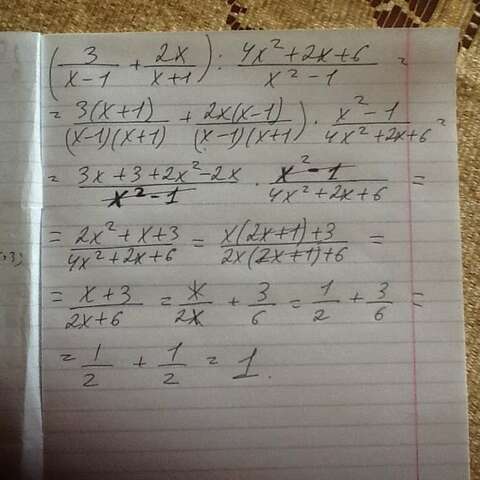 (3/(x-1) + 2x/(x+1)) : (4x²+2x+6)/(x²-1) =
= 3(x+1)/((x-1)(x+1)) + 2x(x-1)/((x-1)(x+1))) · (x²-1)/(4x²+2x+6) =
= (3x+3+2x²-2x)/(x²-1) · (x²-1)/(4x²+2x+6) =
= (2x²+x+3)/(4x²+2x+6) = (x(2x+1)+3)/(2x(2x+1)+6) =
= (x+3)/(2x+6) = x/2x + 3/6 = 1/2 + 3/6 =
= 1/2 + 1/2 = 1.